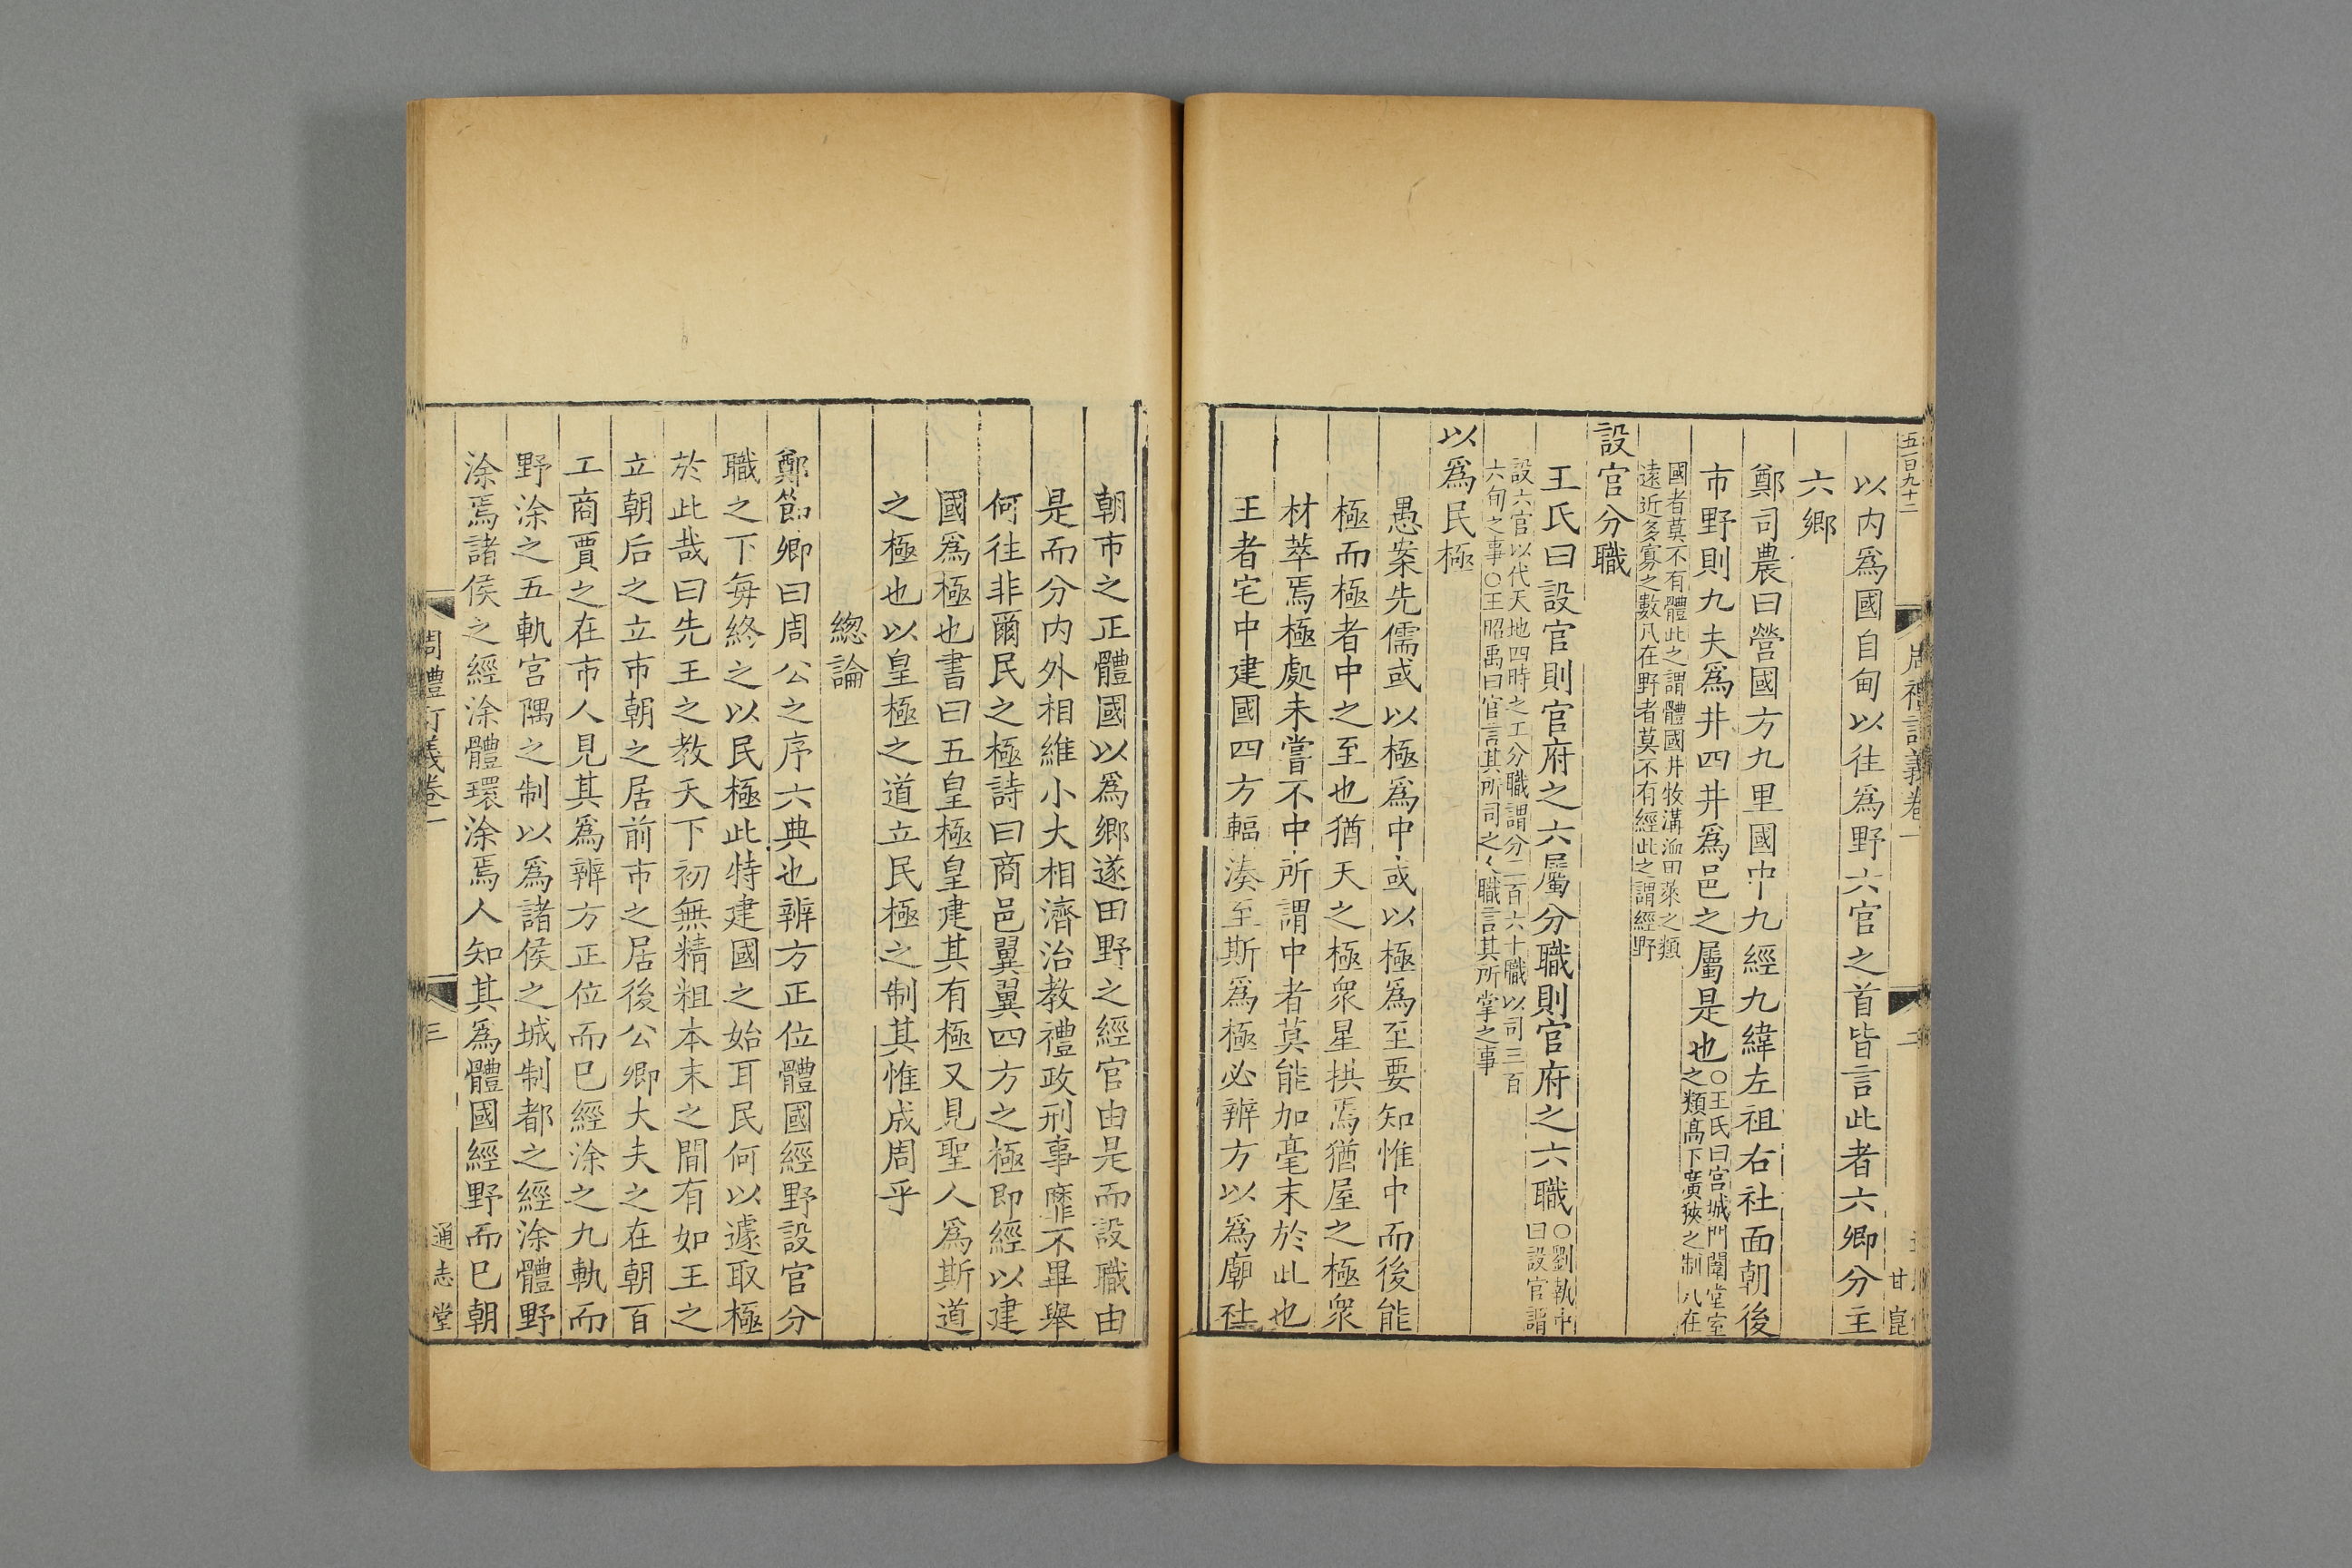 五百九十二
周禮訂義卷一
二
甘
以内爲國自甸以往爲野六官之首皆言此者六卿分主
六鄉
鄭司農曰營國方九里國中九經九緯左祖右社面朝後
市野則九夫爲井四井爲邑之屬是也○王氏曰宫城門闈堂室
之類高下廣狹之制凡在
國者莫不有體此之謂體國井牧溝洫田萊之類
遠近多寡之數凡在野者莫不有經此之謂經野
設官分職
王氏曰設官則官府之六屬分職則官府之六職○劉執中
曰設官謂
設六官以代天地四時之工分職謂分二百六十職以司三百
六旬之事○王昭禹曰官言其所司之人職言其所掌之事
以爲民極
愚案先儒或以極爲中或以極爲至要知惟中而後能
極而極者中之至也猶天之極衆星拱焉猶屋之極衆
材萃焉極處未嘗不中所謂中者莫能加毫末於此也
王者宅中建國四方輻湊至斯爲極必辨方以爲廟社
朝市之正體國以爲鄉遂田野之經官由是而設職由
是而分内外相維小大相濟治教禮政刑事靡不畢舉
何往非爾民之極詩曰商邑翼翼四方之極即經以建
國爲極也書曰五皇極皇建其有極又見聖人爲斯道
之極也以皇極之道立民極之制其惟成周乎
緫論
鄭節卿曰周公之序六典也辨方正位體國經野設官分
職之下每終之以民極此特建國之始耳民何以遽取極
於此哉曰先王之教天下初無精粗本末之間有如王之
立朝后之立市朝之居前市之居後公卿大夫之在朝百
工商賈之在市人見其爲辨方正位而已經涂之九軌而
野涂之五軌宫隅之制以爲諸侯之城制都之經涂體野
涂焉諸侯之經涂體環涂焉人知其爲體國經野而已朝
周禮訂義卷一
三
通志堂